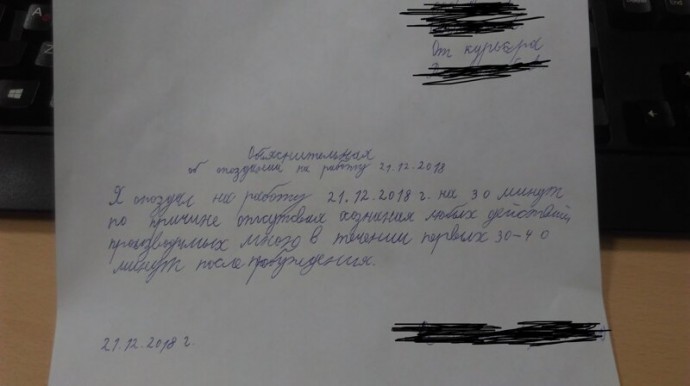 От курьера
Объяснительная
об опоздании на работу 21.12.2018
Я опоздал на работу 21.12.2018 г. на 30 минут
по причине отсутствия сознания любых действий,
производимых мною в течении первых 30-40
минут после пробуждения.
21.12.2018 г.